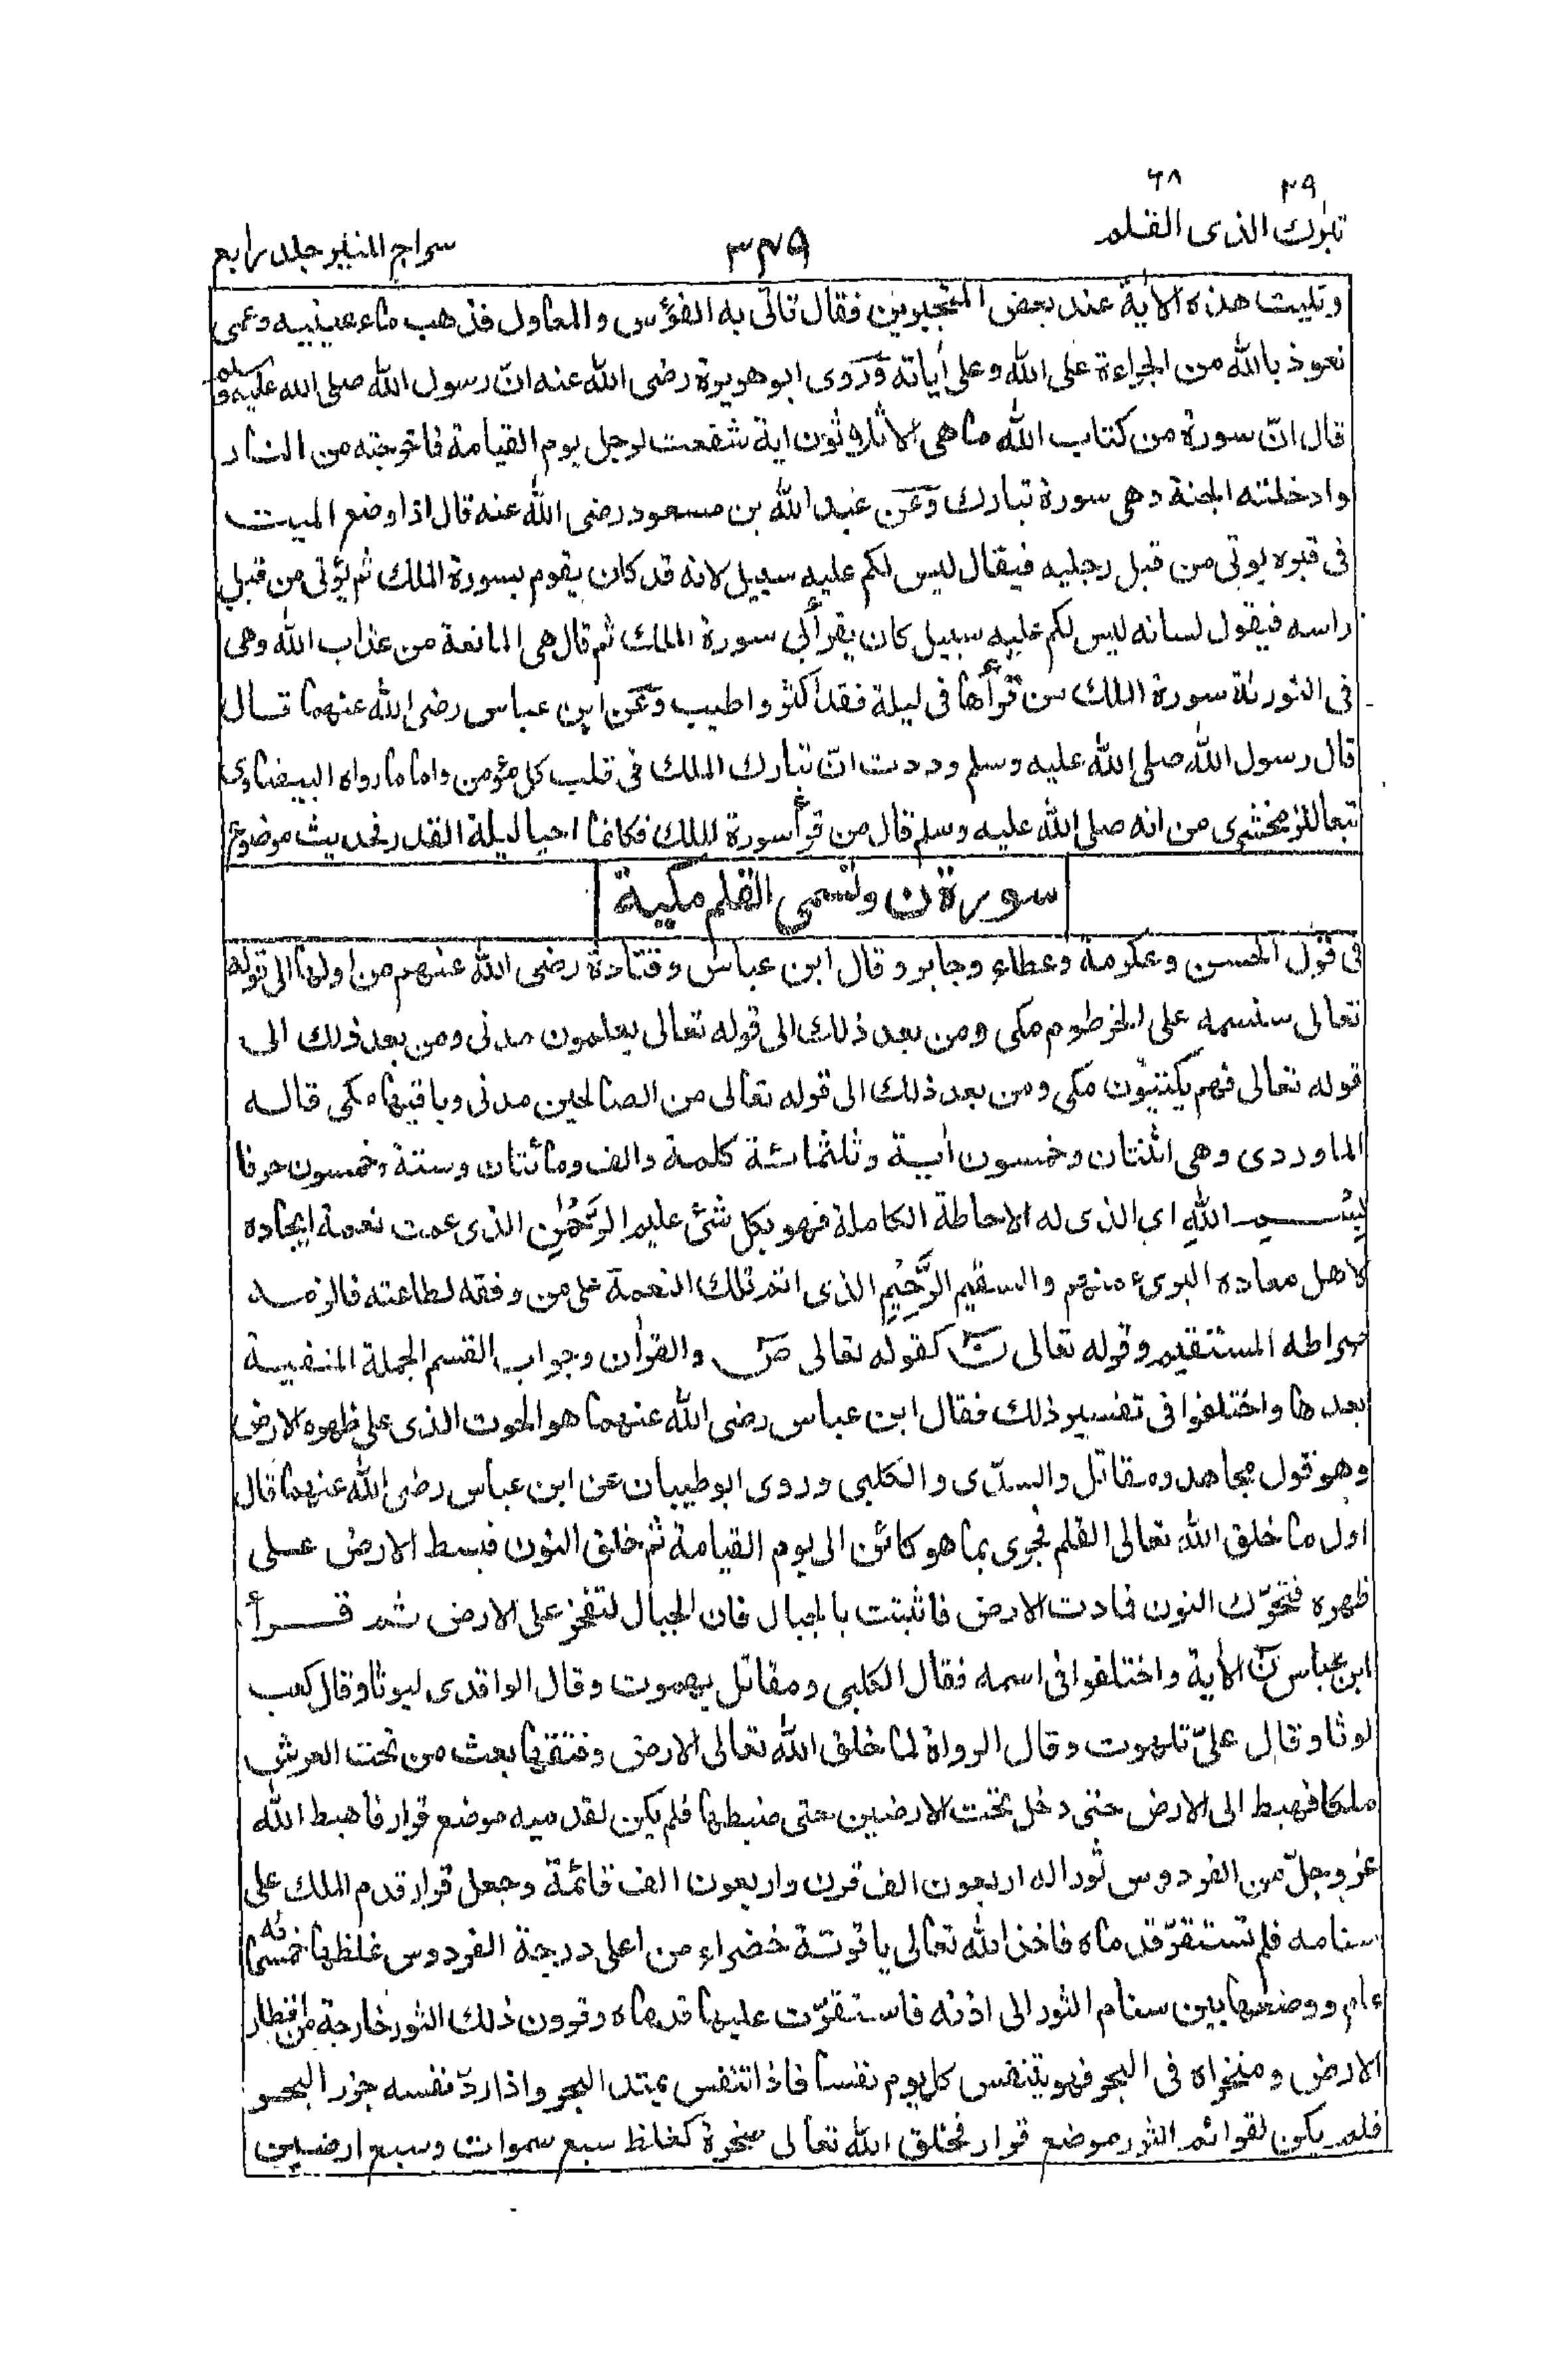 ۲۹ ۶۸
تبٰرك الذى القلم ۳۴۹ سراج المنير جلد رابع
وتليت هذه الاٰية عند بعض المتجبرين فقال تاتى به الفؤس والمعاول فذهب ماء عينيه وعمى
نعوذ بالله من الجراءة على الله وعلى أياته وروى ابو هريرة رضى الله عنه انّ رسول الله صلى الله عليه وسلم
قال انّ سورة من كتاب الله ماهى الا ثلٰثون اية شفعت لرجل يوم القيامة فاخرجته من النار
وادخلته الجنة وهى سورة تبارك وعن عبد الله بن مسعود رضى الله عنه قال اذا وضع الميت
فى قبره يوتى من قبل رجليه فيقال ليس لكم عليه سبيل لانه قد كان يقوم بسورة الملك ثم يؤتى من قبل
راسه فيقول لسانه ليس لكم عليه سبيل كان يقرأ بى سورة الملك ثم قال هى المانعة من عذاب الله وهى
فى التورىٰة سورة الملك من قرأها فى ليلة فقد اكثر واطيب وعن ابن عباس رضى الله عنهما قال
قال رسول الله صلى الله عليه وسلم وددت انّ تبارك الملك فى قلب كل مؤمن واما ما رواه البيضاوى
تبعا للزمخشرى من انه صلى الله عليه وسلم قال من قرأ سورة الملك فكانما احيا ليلة القدر فحديث موضوع
سورة ن وتسمى القلم مكية
فى قول الحسن وعكرمة وعطاء وجابر وقال ابن عباس وقتادة رضى الله عنهم من اولها الى قوله
تعالى سنسمه على الخرطوم مكى ومن بعد ذلك الى قوله تعالى يعلمون مدنى ومن بعد ذلك الى
قوله تعالى فهم يكتبون مكى ومن بعد ذلك الى قوله تعالى من الصالحين مدنى وباقيها مكى قاله
الماوردى وهى اثنتان وخمسون أية وثلثمائة كلمة والف ومائتان وستة وخمسون حرفا
بِسْمِ اللهِ اى الذى له الاحاطة الكاملة فهو بكل شئ عليم الرَّحْمٰنِ الذى عمت نعمة ايجاده
لاهل معاده البرىء منهم والسقيم الرَّحِيْمِ الذى اتم تلك النعمة على من وفقه لطاعته فالزمه
صراطه المستقيم وقوله تعالى نٓ كقوله تعالى صٓ والقراٰن وجواب القسم الجملة المنفية
بعدها واختلفوا فى تفسير ذلك فقال ابن عباس رضى الله عنهما هو الحوت الذى على ظهره الارض
وهو قول مجاهد ومقاتل والسدّى والكلبى وروى ابو ظبيان عن ابن عباس رضى الله عنهما قال
اول ما خلق الله تعالى القلم فجرى بما هو كائن الى يوم القيامة ثم خلق النون فبسط الارض على
ظهره فتحرّك النون فمادت الارض فاثبتت بالجبال فان الجبال لتفخر على الارض ثم قرأ
ابن عباس نٓ الأية واختلفوا فى اسمه فقال الكلبى ومقاتل يهموت وقال الواقدى ليوثا وقال كعب
لوثا وقال علىّ تلهوت وقال الرواة لما خلق الله تعالى الارض وفتقها بعث من تحت العرش
ملكا فهبط الى الارض حتى دخل تحت الارضين حتى ضبطها فلم يكن لقدميه موضع قرار فاهبط الله
عز وجلّ من الفردوس ثورا له اربعون الف قرن واربعون الف قائمة وجعل قرار قدم الملك على
سنامه فلم تستقرّ قدماه فاخذ الله تعالى ياقوتة خضراء من اعلى درجة الفردوس غلظها خمسمائة
عام ووضعها بين سنام الثور الى اذنه فاستقرّت عليها قدماه وقرون ذلك الثور خارجة من اقطار
الارض ومنخراه فى البحر فهو يتنفس كل يوم نفسا فاذا تنفس يمتد البحر واذا ردّ نفسه جزر البحر
فلم يكون لقوائم الثور موضع قرار فخلق الله تعالى صخرة كغلظ سبع سموات وسبع ارضين